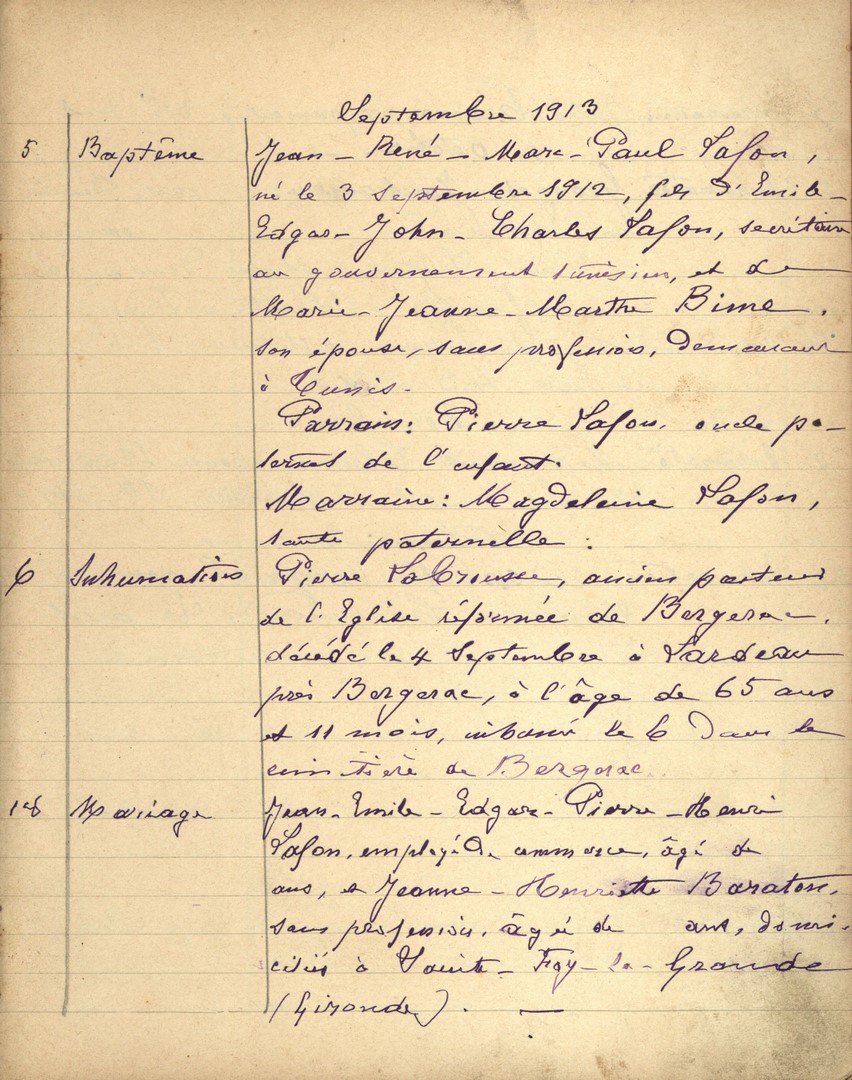 Septembre 1913
5 Baptême Jean - René - Marc - Paul Lafon,
né le 3 Septembre 1912, fils d'Emile-
Edgar - John - Charles Lafon, secrétaire
au gouvernement tunisien, et de
Marie - Jeanne - Marthe Bime,
son épouse, sans profession, demeurant
à Tunis.
Parrain: Pierre Lafon, oncle pa-
ternel de l'enfant.
Marraine: Magdeleine Lafon,
tante paternelle.
6 Inhumation Pierre Labrousse, ancien pasteur
de l'Eglise réformée de Bergerac,
décédé le 4 Septembre à
près Bergerac, à l'âge de 65 ans
et 11 mois, inhumé le 6 dans le
cimetière de Bergerac.
18 Mariage Jean - Emile - Edgar - Pierre - Henri
Lafon, employé de commerce, âgé de
ans, et Jeanne - Henriette Baraton,
sans profession, âgée de ans, domi-
ciliés à Sainte - Foy - la - Grande
(Gironde). —